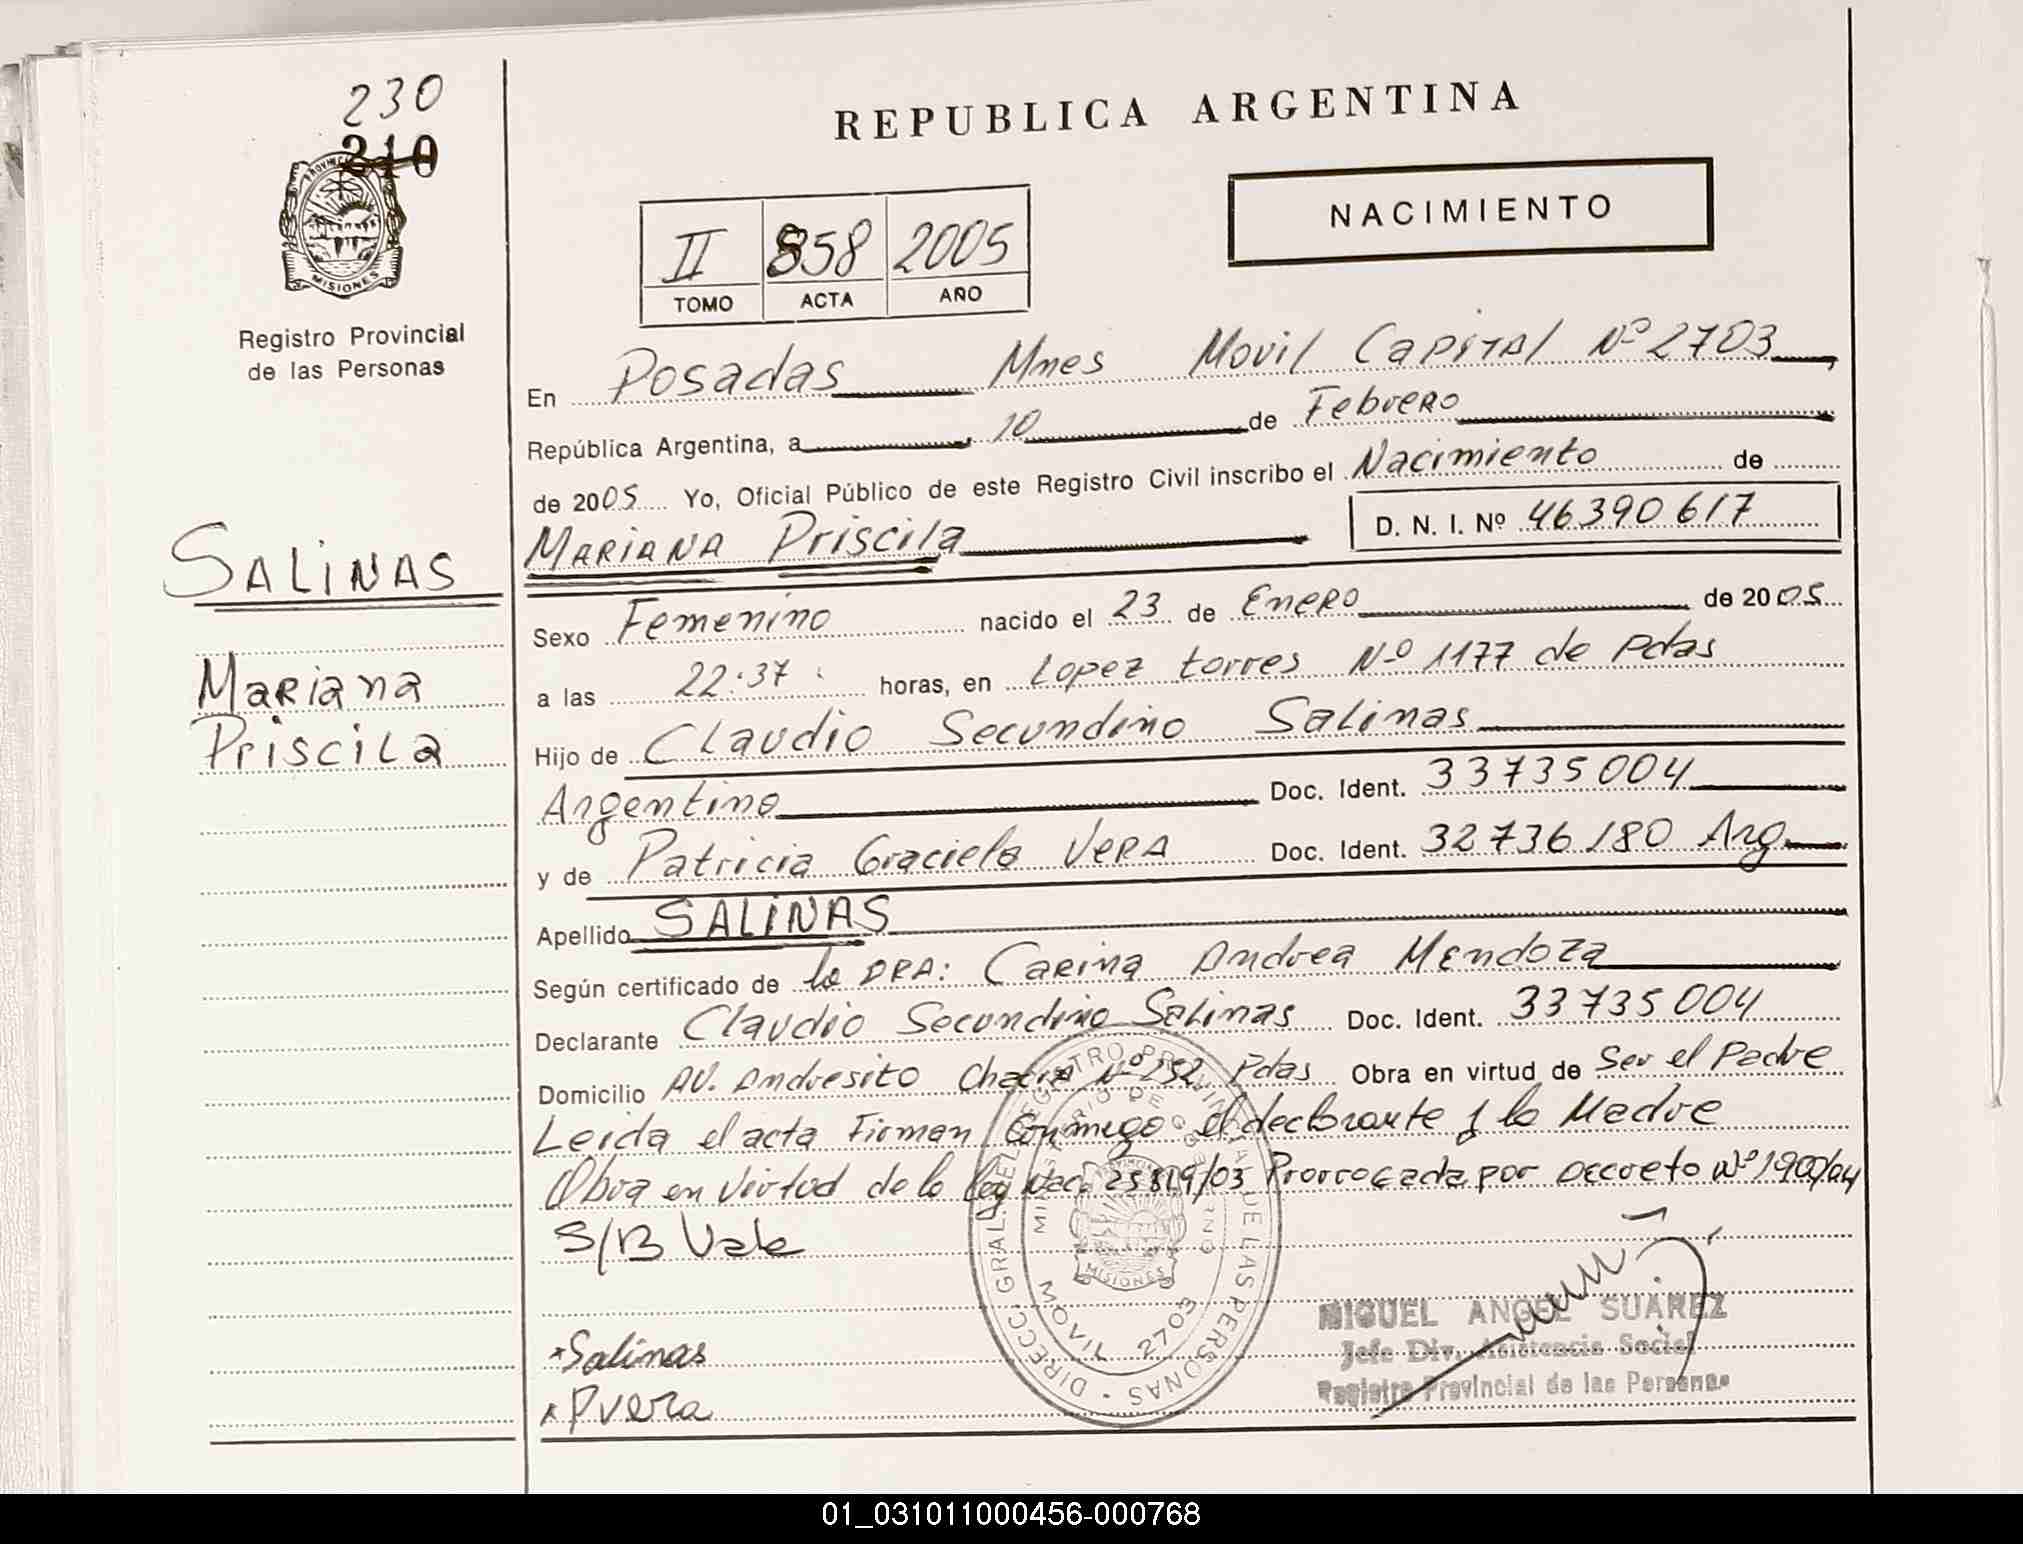 230
210
PROVINCIA
MISIONES
Registro Provincial
de las Personas
SALINAS
Mariana
Priscila
REPUBLICA ARGENTINA
NACIMIENTO
II 858 2005
TOMO ACTA AÑO
En Posadas Mnes Movil Capital Nº 2703,
República Argentina, a 10 de Febrero
de 2005 Yo, Oficial Público de este Registro Civil inscribo el Nacimiento de
MARIANA Priscila D. N. I. Nº 46390617
Sexo Femenino nacido el 23 de Enero de 2005
a las 22:37 horas, en Lopez torres Nº 1177 de Pdas
Hijo de Claudio Secundino Salinas
Argentino Doc. Ident. 33735004
y de Patricia Graciela Vera Doc. Ident. 32736180 Arg
Apellido SALINAS
Según certificado de la DRA: Carina Andrea Mendoza
Declarante Claudio Secundino Salinas Doc. Ident. 33735004
Domicilio AV. Andresito Chacra Nº 252 Pdas Obra en virtud de Ser el Padre
Leida el acta Firman Conmigo el declarante y la Madre
Obra en virtud de la Ley Nac. 25819/03 Prorrogada por Decreto Nº 1900/04
S/B Vale
*Salinas
*Pvera
DIRECC. GRAL. DEL REGISTRO PROVINCIAL DE LAS PERSONAS
MINISTERIO DE GOBIERNO
MISIONES
MOVIL 2703
MIGUEL ANGEL SUAREZ
Jefe Div. Asistencia Social
Registro Provincial de las Personas
01_031011000456-000768